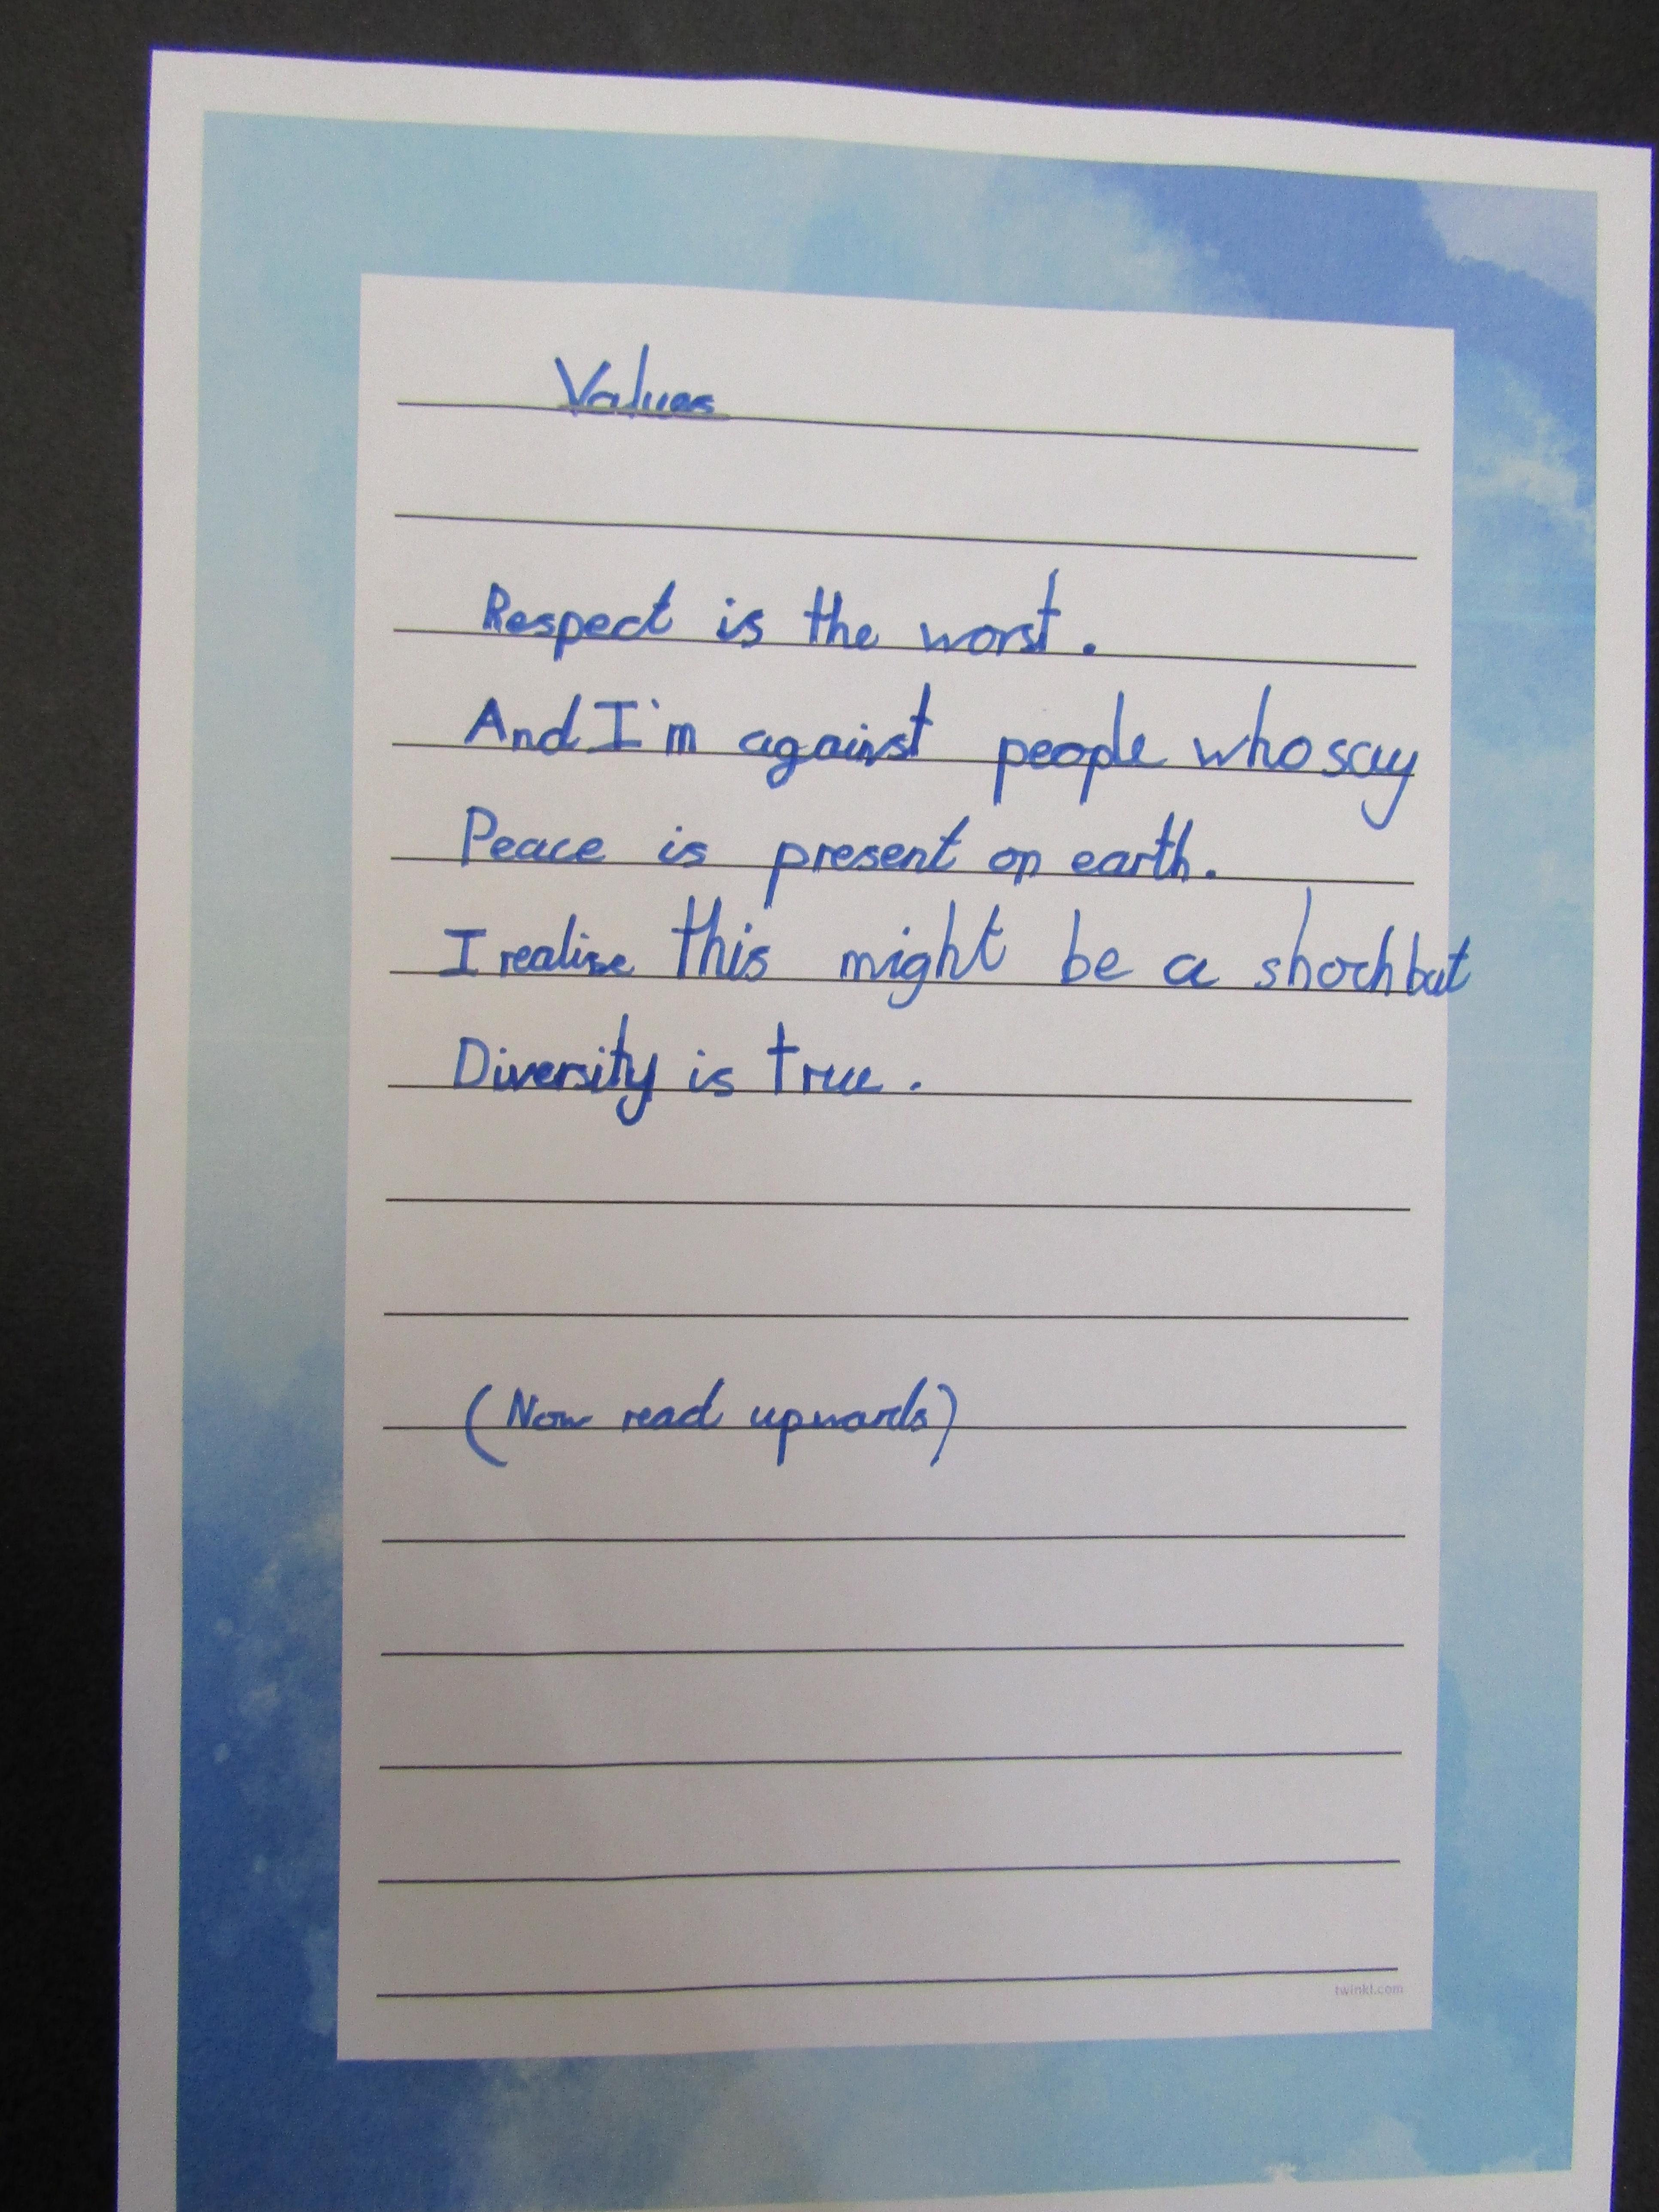 Values
Respect is the worst.
And I'm against people who say
Peace is present on earth.
I realise this might be a shock but
Diversity is true.
(Now read upwards)
twinkl.com